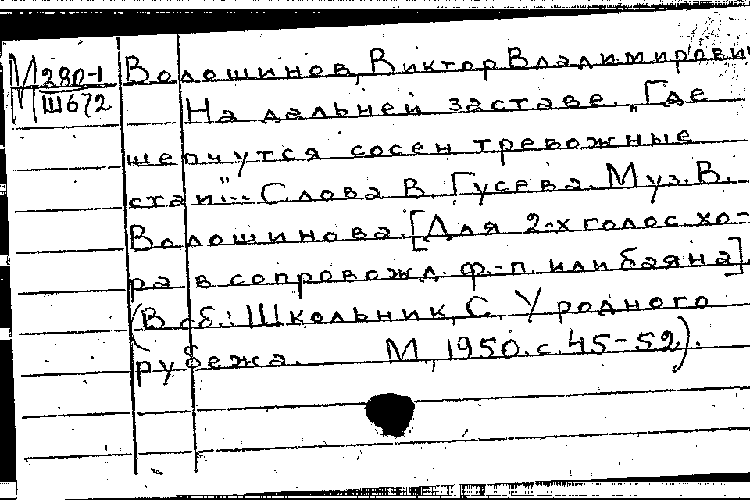 М 280-1
Ш672
Волошинов, Виктор Владимирови
На дальней заставе. „Где
шепчутся сосен тревожные
стаи"... Слова В. Гусева. Муз. В.
Волошинова. [Для 2-х голос. хо-
ра в сопровожд. ф-п. или баяна].
(В сб.: Школьник, С. У родного
рубежа. М., 1950. с. 45-52).